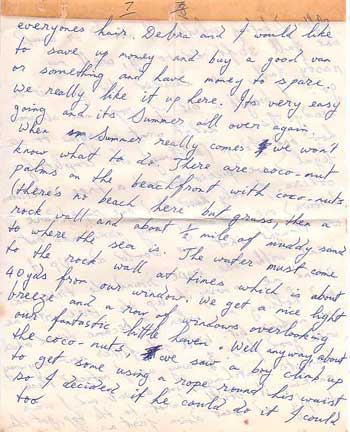 everyones hair. Debra and I would like
to save up money and buy a good van
or something and have money to spare.
We really like it up here. Its very easy
going and its Summer all over again.
When Summer really comes we won't
know what to do. There are coco-nut
palms on the beachfront with coco-nuts.
(there's no beach here but grass, then a
rock wall and about ½ mile of muddy sand
to where the sea is. The water must come
to the rock wall at times which is about
40yds from our window. We get a nice light
breeze and a row of windows overlooking
our fantastic little haven. Well anyway about
the coco-nuts, we saw a boy climb up
to get some using a rope round his waist
so I decided if he could do it I could
too